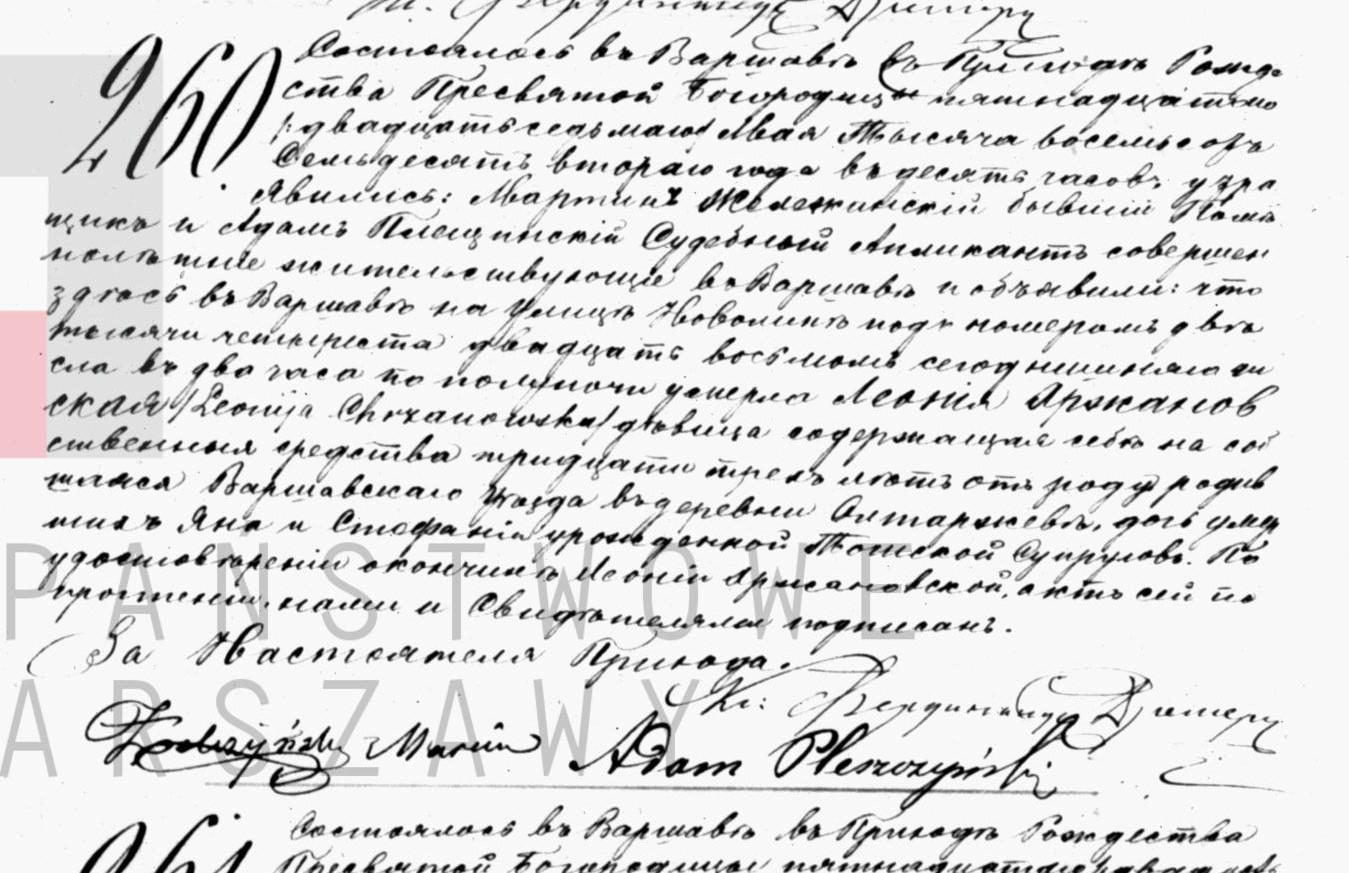 Кс. Фердинандъ
260
Состоялось въ Варшавѣ въ Приходѣ Рожде
ства Пресвятой Богородицы пятнадцатаго
/:двадцать седьмаго/ Мая Тысяча восемьсотъ
Семьдесятъ втораго года въ десять часовъ утра
Явились: Мартинъ бывшій Помѣ
щикъ и Адамъ Плещинскій Судебный Апликантъ совершен
нолѣтніе жительствующіе въ Варшавѣ и объявили: что
здѣсь въ Варшавѣ на Улицѣ Новолипкѣ подъ номеромъ двѣ
тысячи четыреста двадцать восьмомъ сегоднишняго чи
сла въ два часа по полуночи умерла Леонія Хржанов
ская /Leonija Chrzanowska/ дѣвица содержащая себѣ на соб
ственныя средства тридцати трехъ лѣтъ отъ роду родив
шаяся Варшавскаго Уѣзда въ деревни Олтаржевѣ, дочь умер
шихъ Яна и Стефаніи урожденной Супруговъ. По
удостовѣреніи о кончинѣ Леоніи Хржановской, актъ сей по
прочтеніи, нами и Свидѣтелями подписанъ.
За Настоятеля Прихода.
Кс: Фердинандъ
Marcin Adam Pleszczyński
261
Состоялось въ Варшавѣ въ Приходѣ Рождества
Пресвятой Богородицы пятнадцатаго
PAŃSTWOWE
ARSZAWY